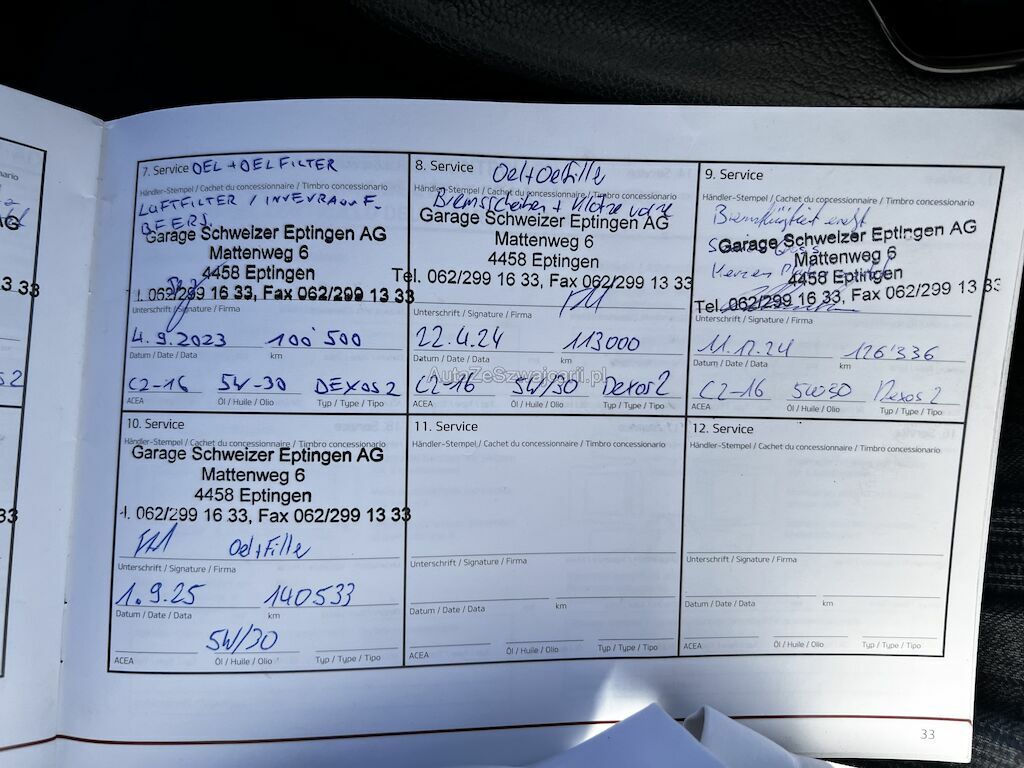 7. Service OEL + OELFILTER
Händler-Stempel / Cachet du concessionnaire / Timbro concessionario
LUFTFILTER / INNENRAUMF.
Garage Schweizer Eptingen AG
Mattenweg 6
4458 Eptingen
l. 062/299 16 33, Fax 062/299 13 33
Unterschrift / Signature / Firma
4.9.2023 100'500
Datum / Date / Data km
C2-16 5W-30 DEXOS 2
ACEA Öl / Huile / Olio Typ / Type / Tipo
8. Service Oel+Oelfilter
Händler-Stempel / Cachet du concessionnaire / Timbro concessionario
Bremsscheiben + Klötze vorne
Garage Schweizer Eptingen AG
Mattenweg 6
4458 Eptingen
Tel. 062/299 16 33, Fax 062/299 13 33
Unterschrift / Signature / Firma
22.4.24 113000
Datum / Date / Data km
C2-16 5W/30 Dexos2
ACEA Öl / Huile / Olio Typ / Type / Tipo
9. Service
Händler-Stempel / Cachet du concessionnaire / Timbro concessionario
Bremsflüssigkeit
Garage Schweizer Eptingen AG
Mattenweg 6
4458 Eptingen
Tel. 062/299 16 33, Fax 062/299 13 3
Unterschrift / Signature / Firma
11.12.24 126'336
Datum / Date / Data km
C2-16 5W30 Dexos 2
ACEA Öl / Huile / Olio Typ / Type / Tipo
10. Service
Händler-Stempel / Cachet du concessionnaire / Timbro concessionario
Garage Schweizer Eptingen AG
Mattenweg 6
4458 Eptingen
l. 062/299 16 33, Fax 062/299 13 33
Oel+Filter
Unterschrift / Signature / Firma
1.9.25 140533
Datum / Date / Data km
5W/30
ACEA Öl / Huile / Olio Typ / Type / Tipo
11. Service
Händler-Stempel / Cachet du concessionnaire / Timbro concessionario
Unterschrift / Signature / Firma
Datum / Date / Data km
ACEA Öl / Huile / Olio Typ / Type / Tipo
12. Service
Händler-Stempel / Cachet du concessionnaire / Timbro concessionario
Unterschrift / Signature / Firma
Datum / Date / Data km
ACEA Öl / Huile / Olio Typ / Type / Tipo
33
AutaZeSzwajcarii.pl